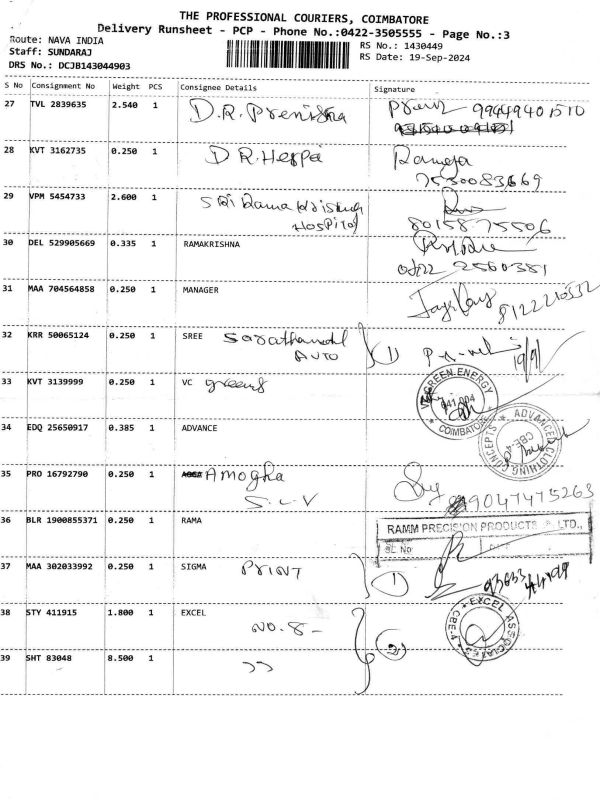 THE PROFESSIONAL COURIERS, COIMBATORE
Delivery Runsheet - PCP - Phone No.:0422-3505555 - Page No.:3
Route: NAVA INDIA
Staff: SUNDARAJ
DRS No.: DCJB143044903
RS No.: 1430449
RS Date: 19-Sep-2024
S No Consignment No Weight PCS Consignee Details Signature
27 TVL 2839635 2.540 1 D.R.Prenisha
28 KVT 3162735 0.250 1 D R.Herpa Ramya
7530083669
29 VPM 5454733 2.600 1 SRi Rama Krishna
HOSPital 8015875506
30 DEL 529905669 0.335 1 RAMAKRISHNA
0422 2560351
31 MAA 704564858 0.250 1 MANAGER 8122210532
32 KRR 50065124 0.250 1 SREE Sarathambal 1)
AUTO 19/9/
33 KVT 3139999 0.250 1 VC greens
GREEN ENERGY
641 004
COIMBATORE
34 EDQ 25650917 0.385 1 ADVANCE
ADVANCED CLOTHING CONCEPTS
CBE-4
35 PRO 16792790 0.250 1 Amogha
S.L.V 9047475263
36 BLR 1900855371 0.250 1 RAMA
RAMM PRECISION PRODUCTS LTD.,
SL. No
37 MAA 302033992 0.250 1 SIGMA PRINT 1)
38 STY 411915 1.800 1 EXCEL
NO.8- 2)
EXCEL ASSOCIATES
CBE-4
39 SHT 83048 8.500 1 ))